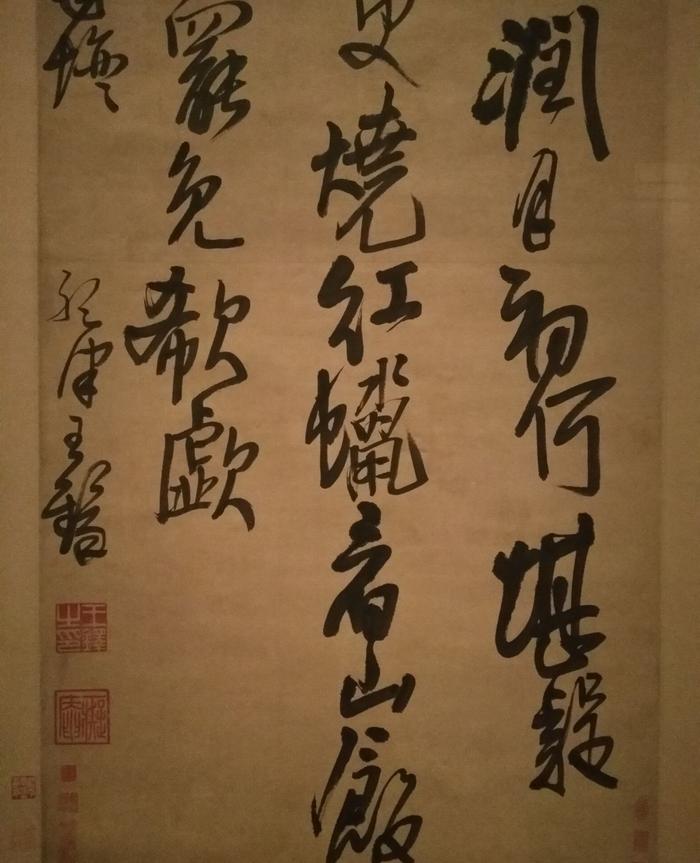 潤月初何堪
更燒紅蠟看山飯
罷免欷歔
孟津王鐸
王鐸之印